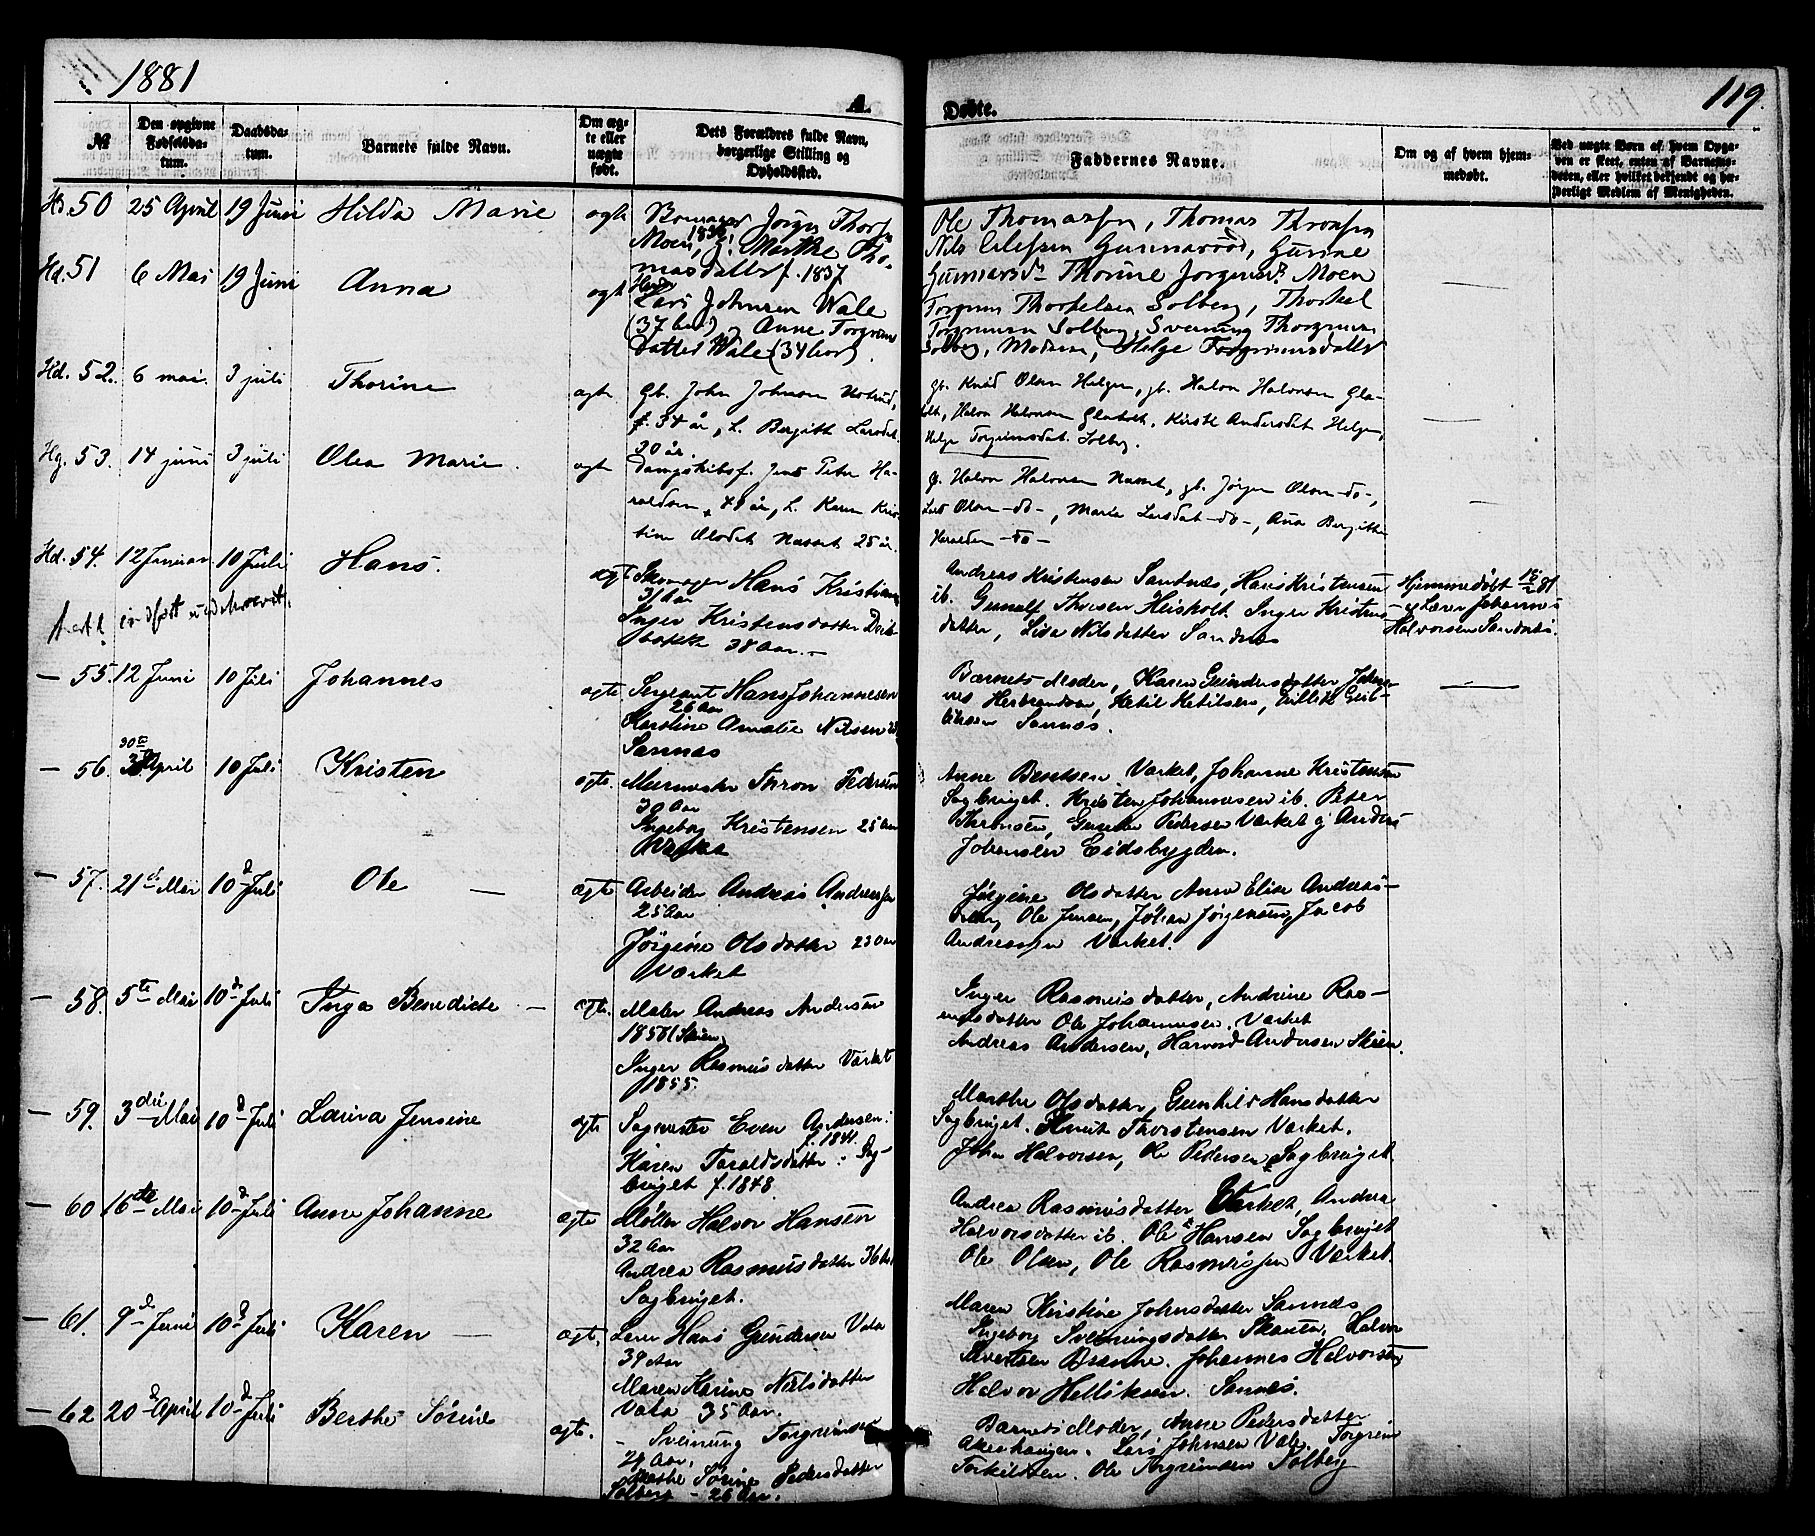 1881
A.
Døbte.
119.
№
Den opgivne Fødselsda-tum.
Daabsda-tum.
Barnets fulde Navn.
Om æg-te eller uægte født.
Dets Forældres fulde Navn, borgerlige Stilling og Opholdssted.
Faddernes Navne.
Om og af hvem hjem-medøbt.
Ved uægte Børn af hvem Opga-ven er skeet, enten af Barnefa-deren, eller hvilket bekjendt og hæ-derligt Medlem af Menigheden.
50 25 April 19 Juni Hilda Marie ægte
Jørgen Thors
Moen, Marthe Tho-
masdatter f. 1837
Ole Thomassen, Thomas Thronsen
Nils Gunnarsrød, Gunne
Gunnarsd. Thorine Jørgensd. Moen
Hd. 51 6 Mai 19 Juni Anna ægte
Lars Johnsen Wale
(37 ) og Anne Torgrims
datter Wale (34 ).
Torgrim Thorkelsen Solberg, Thorkel
Torgrimsen Solberg, Svenung Thorgrims
Solberg, Moderen, Helge Torgrimsdatter
Hd. 52. 6 mai. 3 juli Thorine ægte
Gb. John Johnsen
f. 34 år, h. Bergitte Larsdat.
30 år.
gb. Knud Olsen Helgen, gb. Halvor Halvorsen Gla-
Halvor Halvorsen Kirsti Andersdat Helgen,
Helge Torgrimsdat. Solberg.
Hg. 53. 14 juni 3 juli Olea Marie. ægte
Dampskibsf. Jens Peter Ha-
raldsen 49 år, h. Karen Kris-
tine Olsdat Næsset 25 år.
g. Halvor Halvorsen Næsset, gb. Jørgen Olsen -do-,
Lars Olsen -do-, Maria Larsdat -do-, Ana Bergitte
Haraldsen -do-
Hd. 54. 12 Januar 10 Juli Hans. ægte
indført
Skomager Hans Kristiansen
31 Aar
Inger Kristensdatter
38 Aar.
Andreas Kristensen Sandnæs, Hans Kristensen
ib. Gunulf Thoesen Heisholt. Inger Kristens-
datter, Lisa Nilsdatter Sandnæs
Hjemmedøbt 16/1 81
af Lærer Johannes
Halvorsen Sandnæs.
— 55. 12 Juni 10 Juli Johannes ægte
Sergeant Hans Johannesen
26 Aar
Karoline Amalie Nilsen
Sannæs
Barnets Moder, Karen Gundersdatter, Johan-
nes Herbrandsen, Ketil Ketilsen,
Sannæs.
— 56. 30te April 10 Juli Kristen ægte.
Murmester Thron Pedersen
30 Aar
Ingeborg Kristensen 25 Aar
Værket
Anne Bentsen Værket, Johanne Kristensen
Sagbruget. Kristen Johannesen ib. Peter
Thronsen, Gunder Pedersen Værket og Anders
Johansen Eidsbygden.
— 57. 21de Mai 10de Juli Ole — ægte
Arbeider Andreas Andreassen
25 Aar
Jørgine Olsdatter 23 Aar
Værket
Jørgine Olsdatter Anne Elise Andreas-
datter, Ole Jensen, Johan Jørgensen, Jacob
Andreassen Værket.
— 58. 5te Mai 10de Juli Inga Benedicte — ægte.
Maler Andreas Andersen
1856 Skien,
Inger Rasmusdatter Værket
1855.
Inger Rasmusdatter, Andrine Ras-
musdatter Ole Johannesen. Værket
Andreas Andersen, Harvord Andersen Skien.
— 59. 3die Mai 10de Juli Laura Jensine ægte
Sagmester Even Andersen
f. 1841.
Karen Taraldsdatter. Sag-
bruget f. 1848
Marthe Olsdatter, Gunhild Hansdatter
Sagbruget. Knut Thorstensen Værket.
John Halvorsen, Ole Pedersen Sagbruget.
— 60 16de Mai 10de Juli Anne Johanne ægte
Møller Halvor Hansen
32 Aar
Andrea Rasmusdatter 36 Aar
Sagbruget.
Andrea Rasmusdatter Værket, Andrea
Halvorsdatter ib. Ole Hansen Sagbruget
Ole Olsen, Ole Rasmussen Værket.
— 61. 9de Juni 10de Juli Karen — ægte.
Lærer Hans Gundersen Vala
39 Aar
Maren Karine Nielsdatter
Vala 35 Aar.
Maren Kirstine Johnsdatter Sannæs
Ingeborg Sveinungsdatter Skauen. Halvor
Sivertsen Johannes Halvorsen
Halvor Helliksen. Sannæs.
— 62 20de April 10de Juli Berthe Sørine ægte.
Sveinung Torgrimsen
29 Aar.
Marthe Sørine Pedersdatter
Solberg — 26 Aar.
Barnets Moder, Anne Pedersdatter
Lars Johnsen Vale. Torgrim
Torkildsen. Ole Torgrimsen Solberg